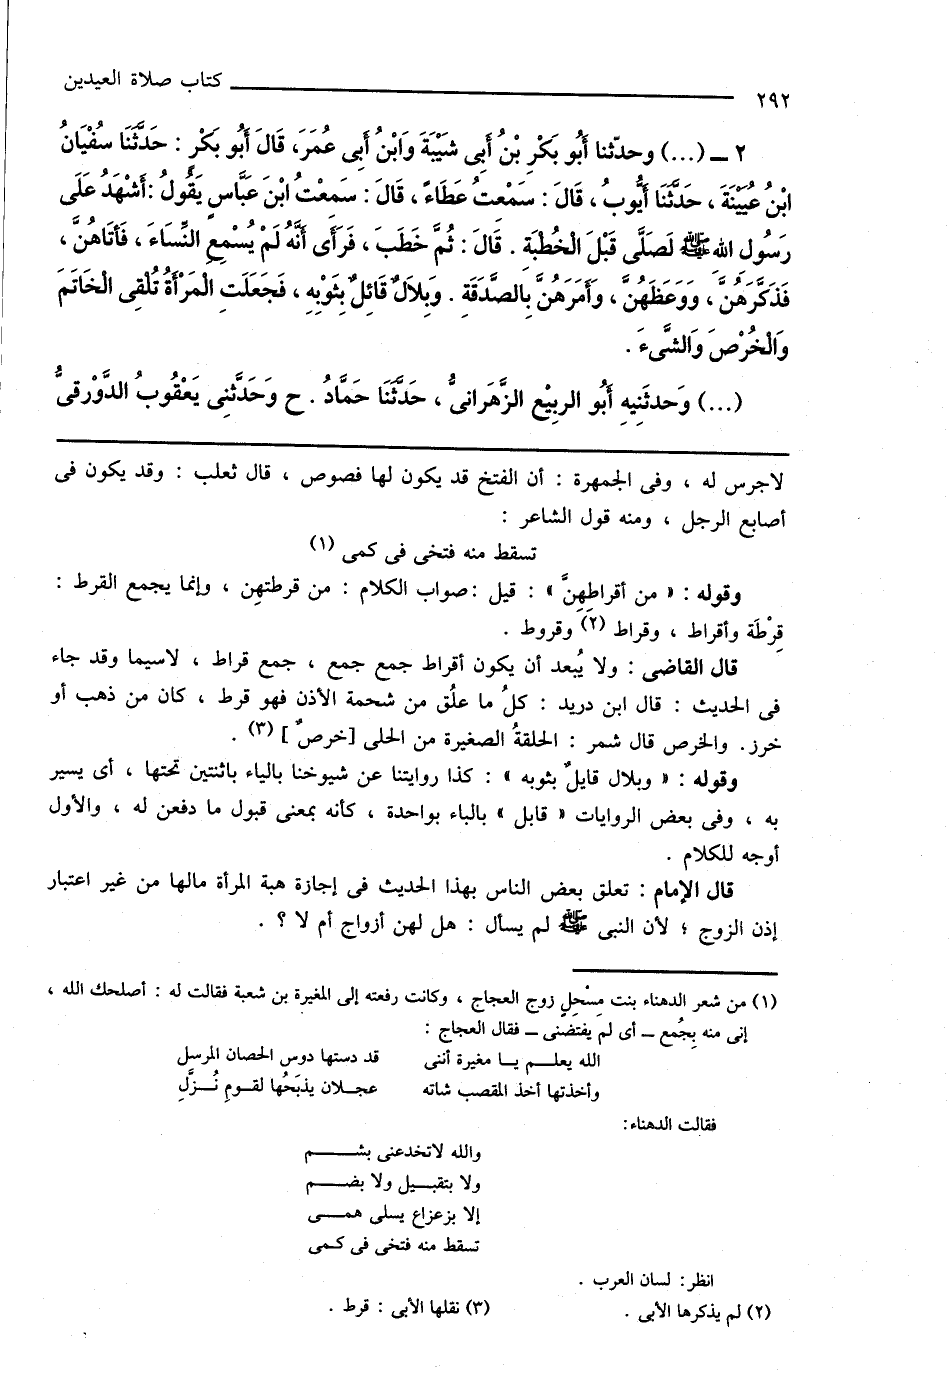 ٢٩٢ كتاب صلاة العيدين
٢ ــ (...) وحدّثنا أَبُو بَكْرِ بْنُ أَبِى شَيْبَةَ وَابْنُ أَبِى عُمَرَ، قَالَ أَبُو بَكْرٍ : حَدَّثَنَا سُفْيَانُ
ابْنُ عُيَيْنَةَ ، حَدَّثَنَا أَيُّوبُ ، قَالَ : سَمِعْتُ عَطَاءً ، قَالَ : سَمِعْتُ ابْنَ عَبَّاسٍ يَقُولُ : أَشْهَدُ عَلَى
رَسُولِ اللهِ ﷺ لَصَلَّى قَبْلَ الْخُطْبَةِ . قَالَ : ثُمَّ خَطَبَ ، فَرَأَى أَنَّهُ لَمْ يُسْمِعِ النِّسَاءَ ، فَأَتَاهُنَّ ،
فَذَكَّرَهُنَّ ، وَوَعَظَهُنَّ ، وَأَمَرَهُنَّ بِالصَّدَقَةِ . وَبِلَالٌ قَائِلٌ بِثَوْبِهِ ، فَجَعَلَتِ الْمَرْأَةُ تُلْقِى الْخَاتَمَ
وَالْخُرْصَ وَالشَّىْءَ .
(...) وَحَدَّثَنِيهِ أَبُو الرَّبِيْعِ الزَّهْرَانِىُّ ، حَدَّثَنَا حَمَّادٌ . ح وَحَدَّثَنِى يَعْقُوبُ الدَّوْرَقِىُّ
لاجرس له ، وفى الجمهرة : أن الفتخ قد يكون لها فصوص ، قال ثعلب : وقد يكون فى
أصابع الرجل ، ومنه قول الشاعر :
تسقط منه فتخى فى كمى (١)
وقوله : « من أقراطِهِنَّ » : قيل : صواب الكلام : من قرطتهن ، وإنما يجمع القرط :
قِرْطَة وأقراط ، وقراط (٢) وقروط .
قال القاضى : ولا يُبعد أن يكون أقراط جمع جمع ، جمع قراط ، لاسيما وقد جاء
فى الحديث : قال ابن دريد : كلُ ما علُق من شحمة الأذن فهو قرط ، كان من ذهب أو
خرز. والخرص قال شمر : الحلقةُ الصغيرة من الحلى [خرصٌ ] (٣) .
وقوله : « وبلال قايلٌ بثوبه » : كذا روايتنا عن شيوخنا بالياء باثنتين تحتها ، أى يسير
به ، وفى بعض الروايات « قابل » بالباء بواحدة ، كأنه بمعنى قبول ما دفعن له ، والأول
أوجه للكلام .
قال الإمام : تعلق بعض الناس بهذا الحديث فى إجازة هبة المرأة مالها من غير اعتبار
إذن الزوج ؛ لأن النبى ﷺ لم يسأل : هل لهن أزواج أم لا ؟ .
(١) من شعر الدهناء بنت مِسْحَل زوج العجاج ، وكانت رفعته إلى المغيرة بن شعبة فقالت له : أصلحك الله ،
إنى منه بِجُمع ــ أى لم يفتضنى ــ فقال العجاج :
الله يعلــم يــا مغيرة أننى قد دستها دوس الحصان المرسل
وأخذتها أخذ المقصب شاته عجــلان يذبَحُها لقــومِ نُــزَّلِ
فقالت الدهناء:
والله لاتخدعنى بشــــم
ولا بتقبيــل ولا بضــــم
إلا بزعزاع يسلى همــــى
تسقط منه فتخى فى كــمى
انظر : لسان العرب .
(٢) لم يذكرها الأبى . (٣) نقلها الأبى : قرط .